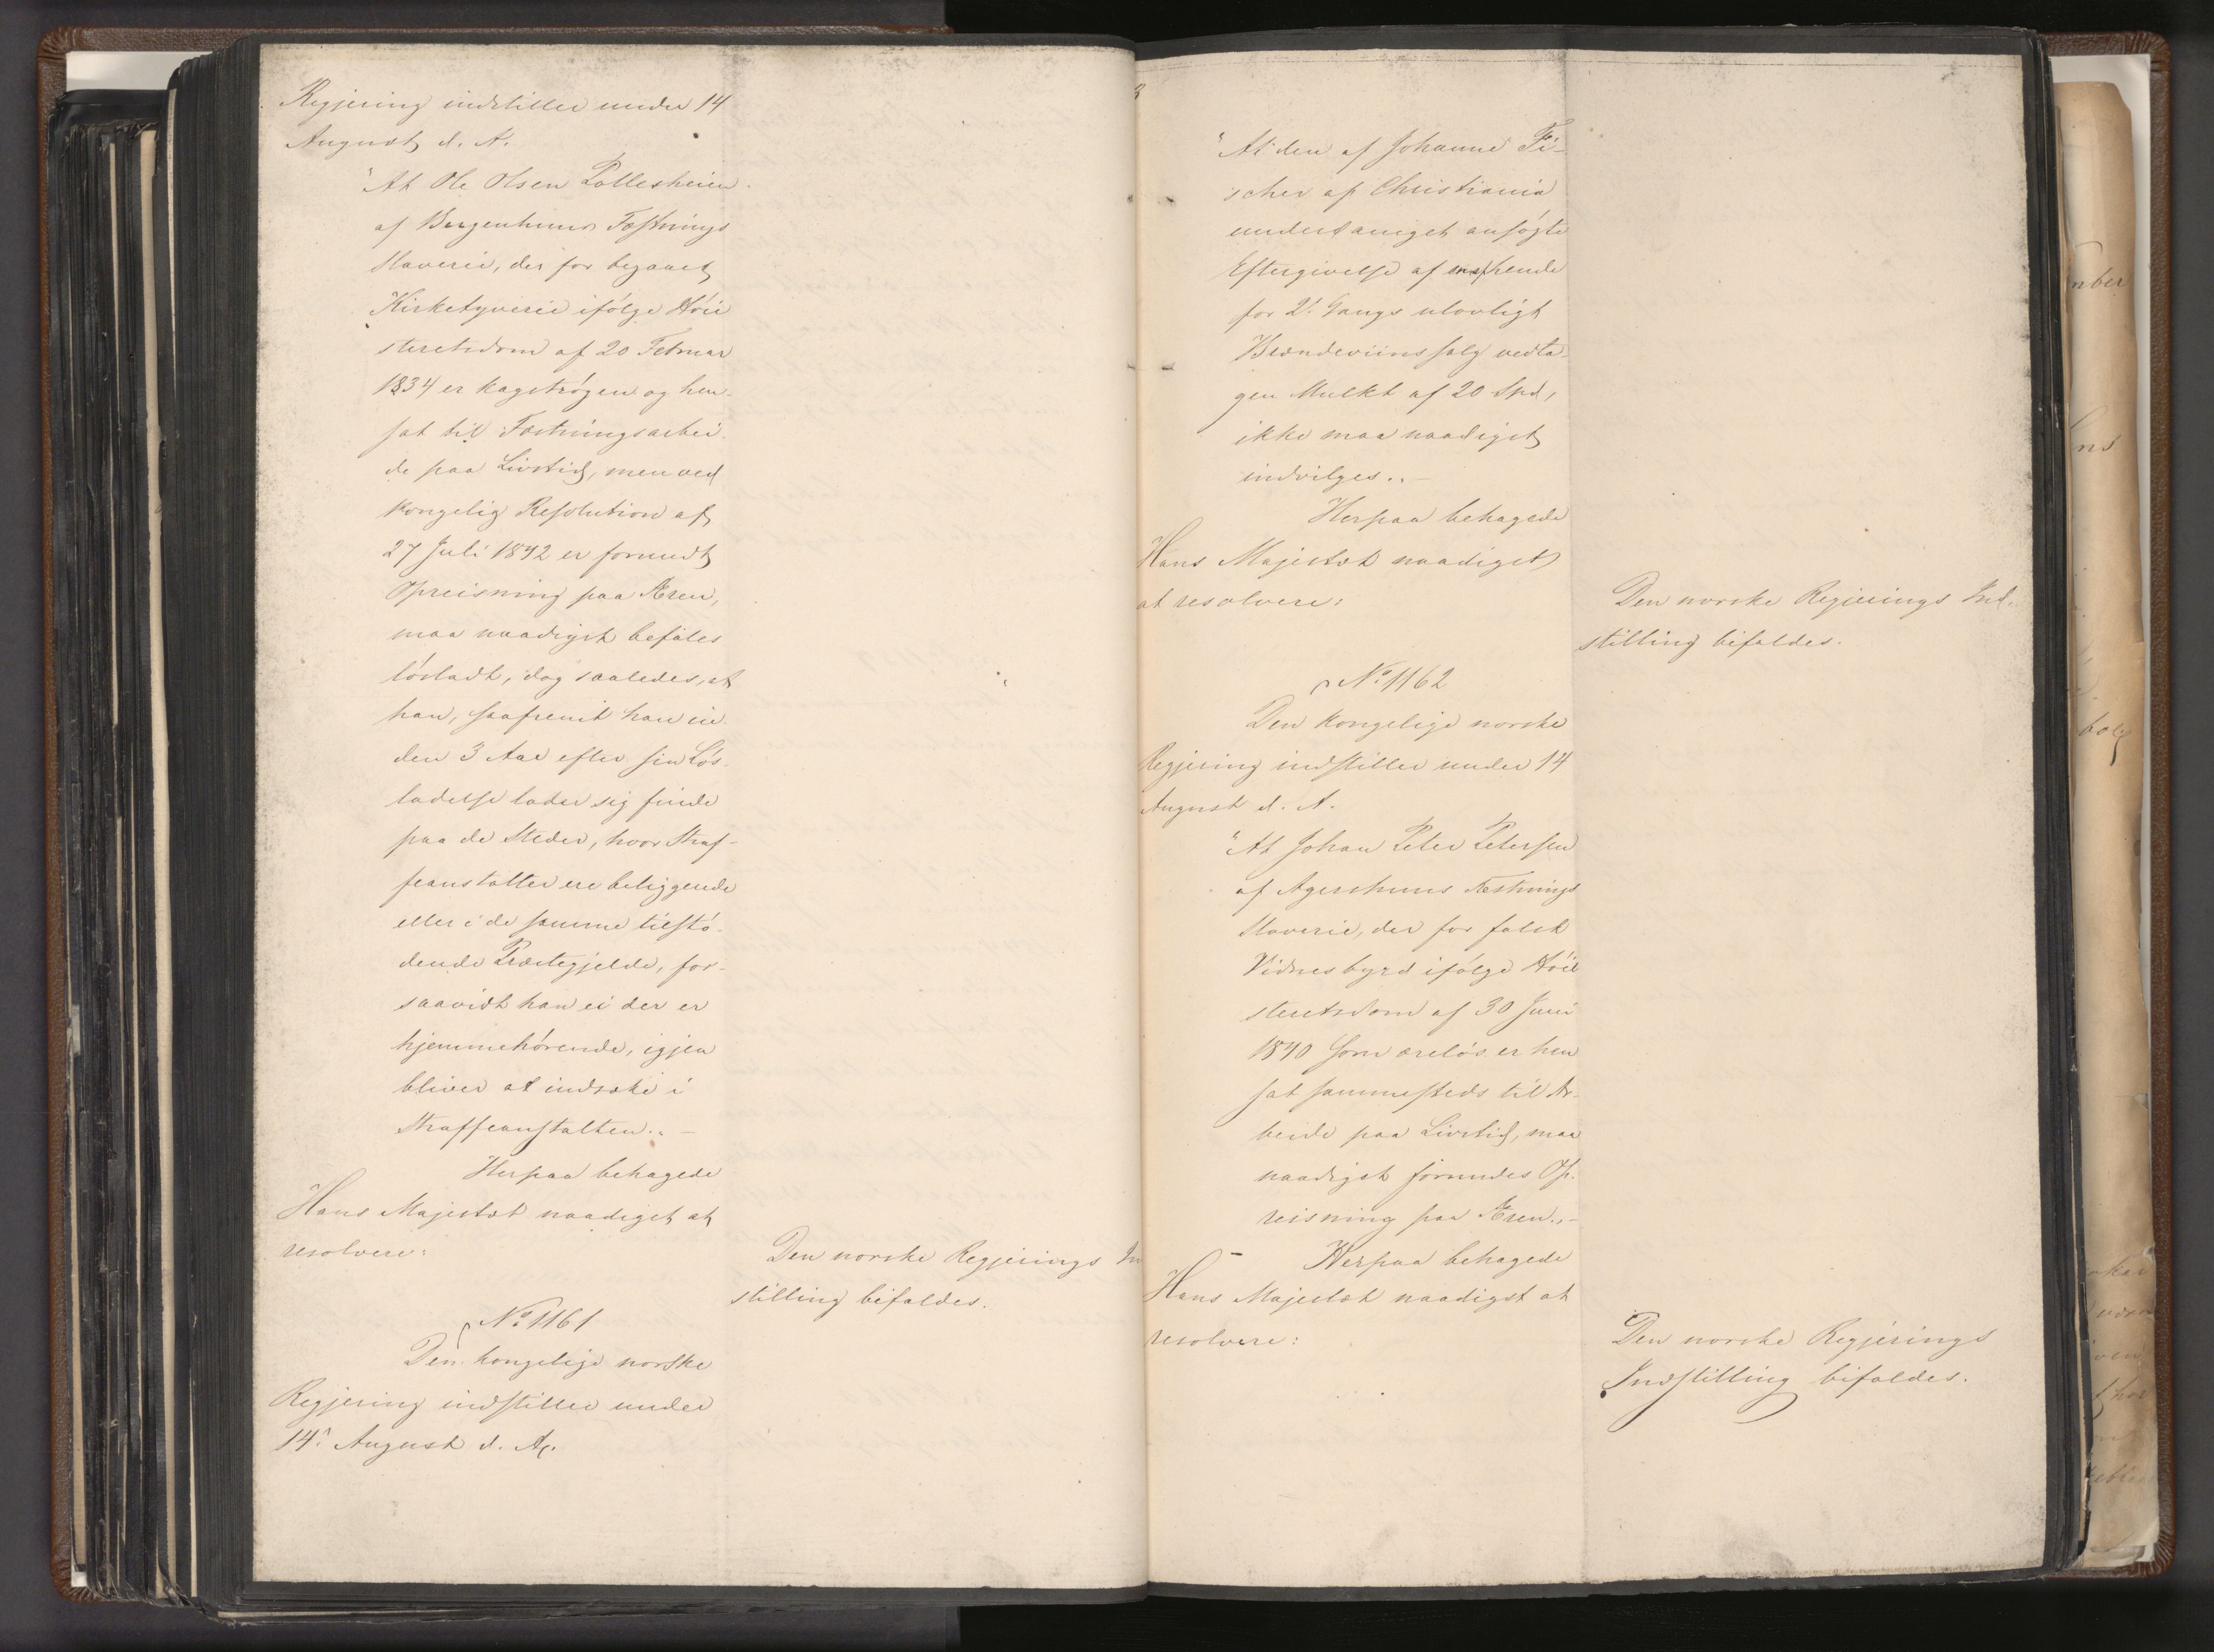 Regjering indstiller under 14
August d. A.
"At Ole Olsen Pollesheien
af Bergenhuus Fæstnings
Slaverie, der for begaaet
Kirketyverie ifølge Höie
steretsdom af 20 Februar
1834 er kagstrøgen og hen-
sat til Fæstningsarbei-
de paa Livstid, men ved
kongelig Resolution af
27 Juli 1842 er forundt
Opreisning paa Æren,
maa naadigst befales
løsladt, dog saaledes, at
han, saafremt han in-
den 3 Aar efter sin Løs-
ladelse lader sig finde
paa de Steder, hvor Straf-
feanstalter ere beliggende
eller i de samme tilstø-
dende Præstegjelde, for-
saavidt han ei der er
hjemmehørende, igjen
bliver at indsætte i
Straffeanstalten." -
Herpaa behagede
Hans Majestæt naadigst at
resolvere:
Den norske Regjerings In
stilling bifaldes.
No 1161
Den kongelige norske
Regjering indstiller under
14. August d. A.
"At den af Johanne Fi-
scher af Christiania
underdanigst ansøgte
Eftergivelse af en hende
for 2. Gangs ulovligt
Brændeviinssalg vedta-
gen Mulkt af 20 Spd,
ikke maa naadigst
indvilges." -
Herpaa behagede
Hans Majestæt naadigst
at resolvere:
Den norske Regjerings Ind-
stilling bifaldes.
No 1162
Den kongelige norske
Regjering indstiller under 14
August d. A.
"At Johan Peter Petersen
af Agershuus Fæstnings
Slaverie, der for falsk
Vidnesbyrd ifølge Höie
steretsdom af 30 Juni
1840 som æreløs er hen
sat sammesteds til Ar-
beide paa Livstid, maa
naadigst forundes Op-
reisning paa Æren." -
Herpaa behagede
Hans Majestæt naadigst at
resolvere:
Den norske Regjerings
Indstilling bifaldes.